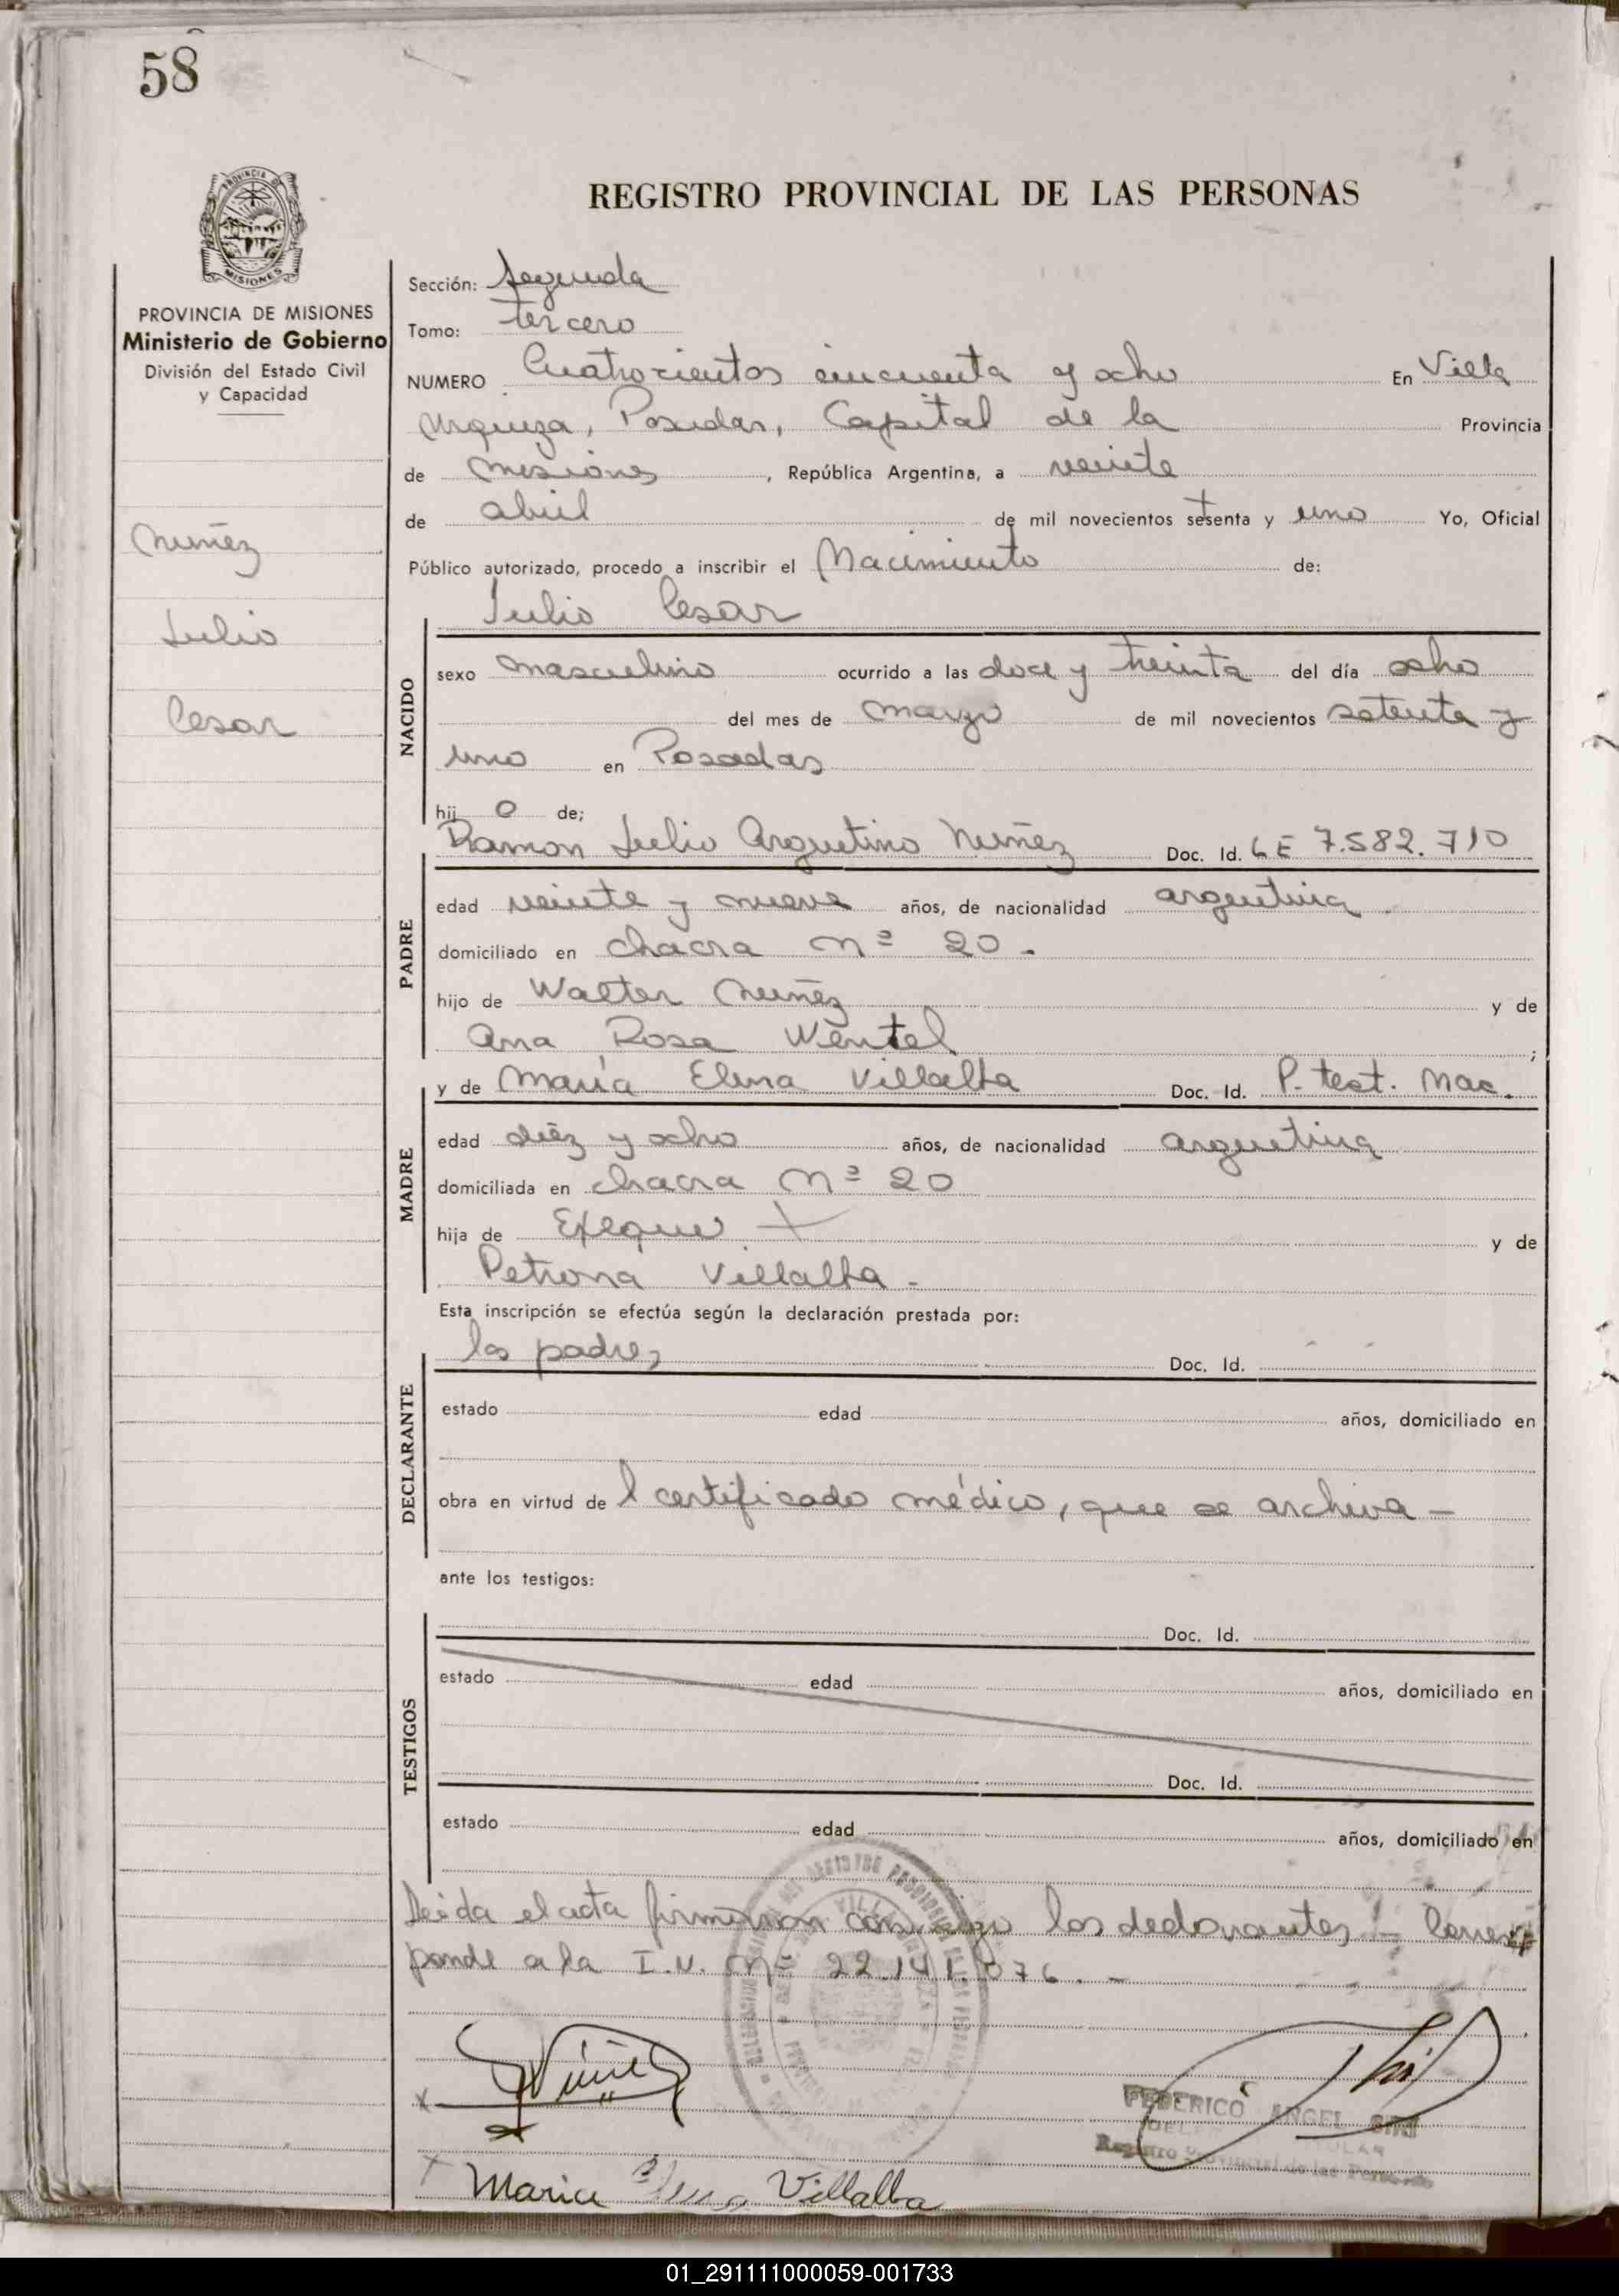 58
PROVINCIA DE
MISIONES
REGISTRO PROVINCIAL DE LAS PERSONAS
PROVINCIA DE MISIONES
Ministerio de Gobierno
División del Estado Civil
y Capacidad
Nuñez
Julio
Cesar
Sección: Segunda
Tomo: tercero
NUMERO Cuatrocientos cincuenta y ocho En Villa
Urquiza, Posadas, Capital de la Provincia
de Misiones, República Argentina, a veinte
de abril de mil novecientos setenta y uno Yo, Oficial
Público autorizado, procedo a inscribir el Nacimiento de:
Julio Cesar
NACIDO
sexo masculino ocurrido a las doce y treinta del día ocho
del mes de marzo de mil novecientos setenta y
uno en Posadas
hij o de;
Ramon Julio Argentino Nuñez Doc. Id. LE 7.582.710
PADRE
edad veinte y nueve años, de nacionalidad argentina
domiciliado en chacra nº 20.
hijo de Walter Nuñez y de
Ana Rosa Wentel;
y de María Elena Villalba Doc. Id. P. test. Nac.
MADRE
edad diéz y ocho años, de nacionalidad argentina
domiciliada en chacra Nº 20
hija de y de
Petrona Villalba.
Esta inscripción se efectúa según la declaración prestada por:
los padres Doc. Id.
DECLARANTE
estado edad años, domiciliado en
obra en virtud de l certificado médico, que se archiva -
ante los testigos:
Doc. Id.
TESTIGOS
estado edad años, domiciliado en
Doc. Id.
estado edad años, domiciliado en
Leida el acta firmaron conmigo los declarantes - Corres
ponde a la I.N. Nº 22.141.076. -
x Nuñez
FEDERICO ANGEL
TITULAR
Registro Provincial de las Personas
x Maria Elena Villalba
01_291111000059-001733